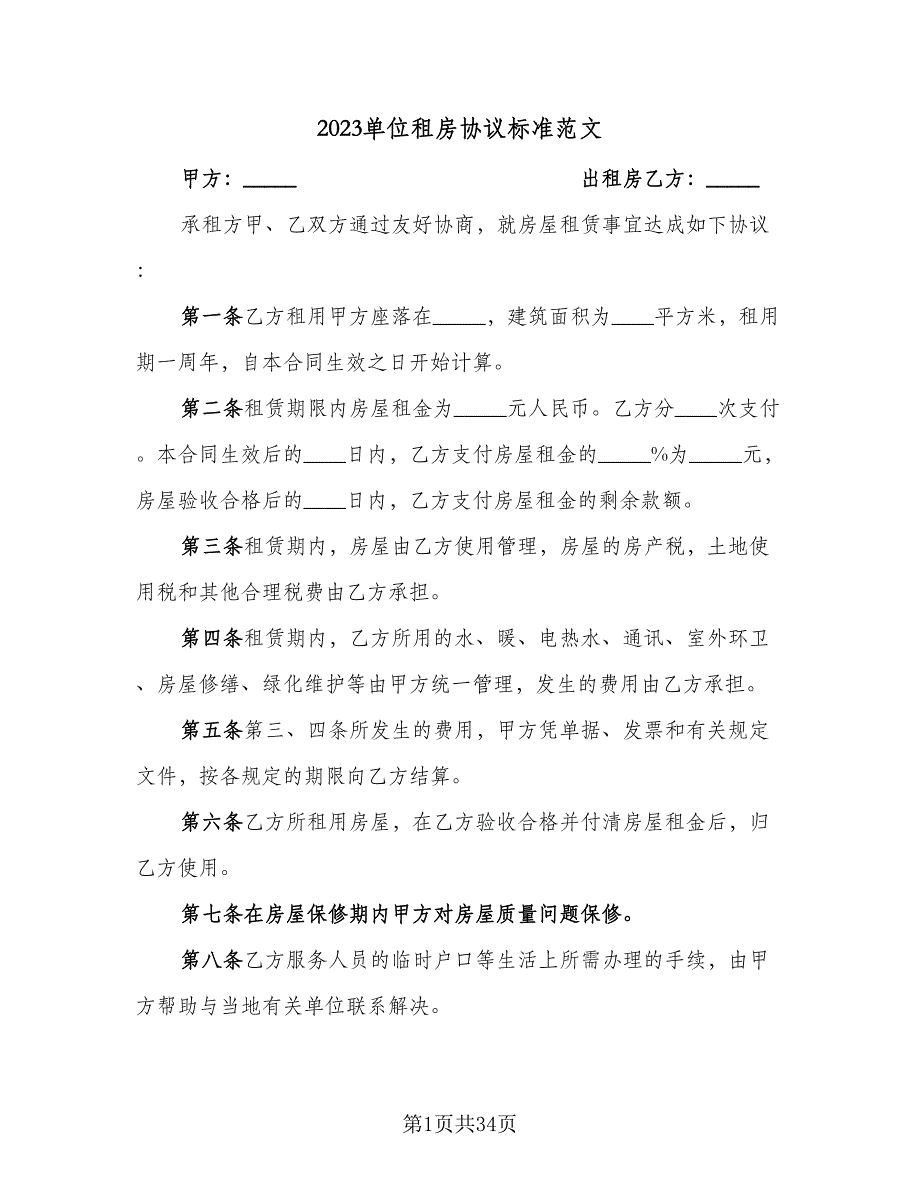 2023单位租房协议标准范文
甲方：_____ 出租房乙方：_____
承租方甲、乙双方通过友好协商，就房屋租赁事宜达成如下协议
：
第一条乙方租用甲方座落在_____，建筑面积为____平方米，租用
期一周年，自本合同生效之日开始计算。
第二条租赁期限内房屋租金为_____元人民币。乙方分____次支付
。本合同生效后的____日内，乙方支付房屋租金的_____%为_____元，
房屋验收合格后的____日内，乙方支付房屋租金的剩余款额。
第三条租赁期内，房屋由乙方使用管理，房屋的房产税，土地使
用税和其他合理税费由乙方承担。
第四条租赁期内，乙方所用的水、暖、电热水、通讯、室外环卫
、房屋修缮、绿化维护等由甲方统一管理，发生的费用由乙方承担。
第五条第三、四条所发生的费用，甲方凭单据、发票和有关规定
文件，按各规定的期限向乙方结算。
第六条乙方所租用房屋，在乙方验收合格并付清房屋租金后，归
乙方使用。
第七条在房屋保修期内甲方对房屋质量问题保修。
第八条乙方服务人员的临时户口等生活上所需办理的手续，由甲
方帮助与当地有关单位联系解决。
第1页共34页